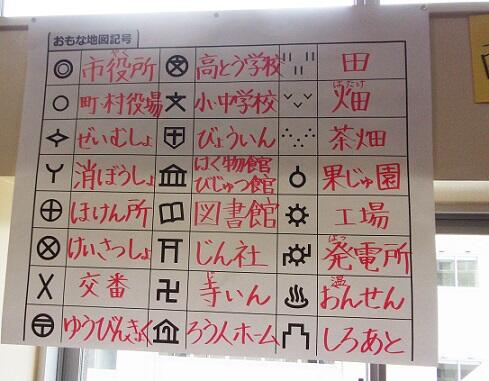 おもな地図記号
市役所 高とう学校 田
町・村役場 小・中学校 畑
ぜいむしょ びょういん 茶畑
消ぼうしょ はく物館 びじゅつ館 果じゅ園
ほけん所 図書館 工場
けいさつしょ じん社 発電所
交番 寺いん おんせん
ゆうびんきょく ろう人ホーム しろあと